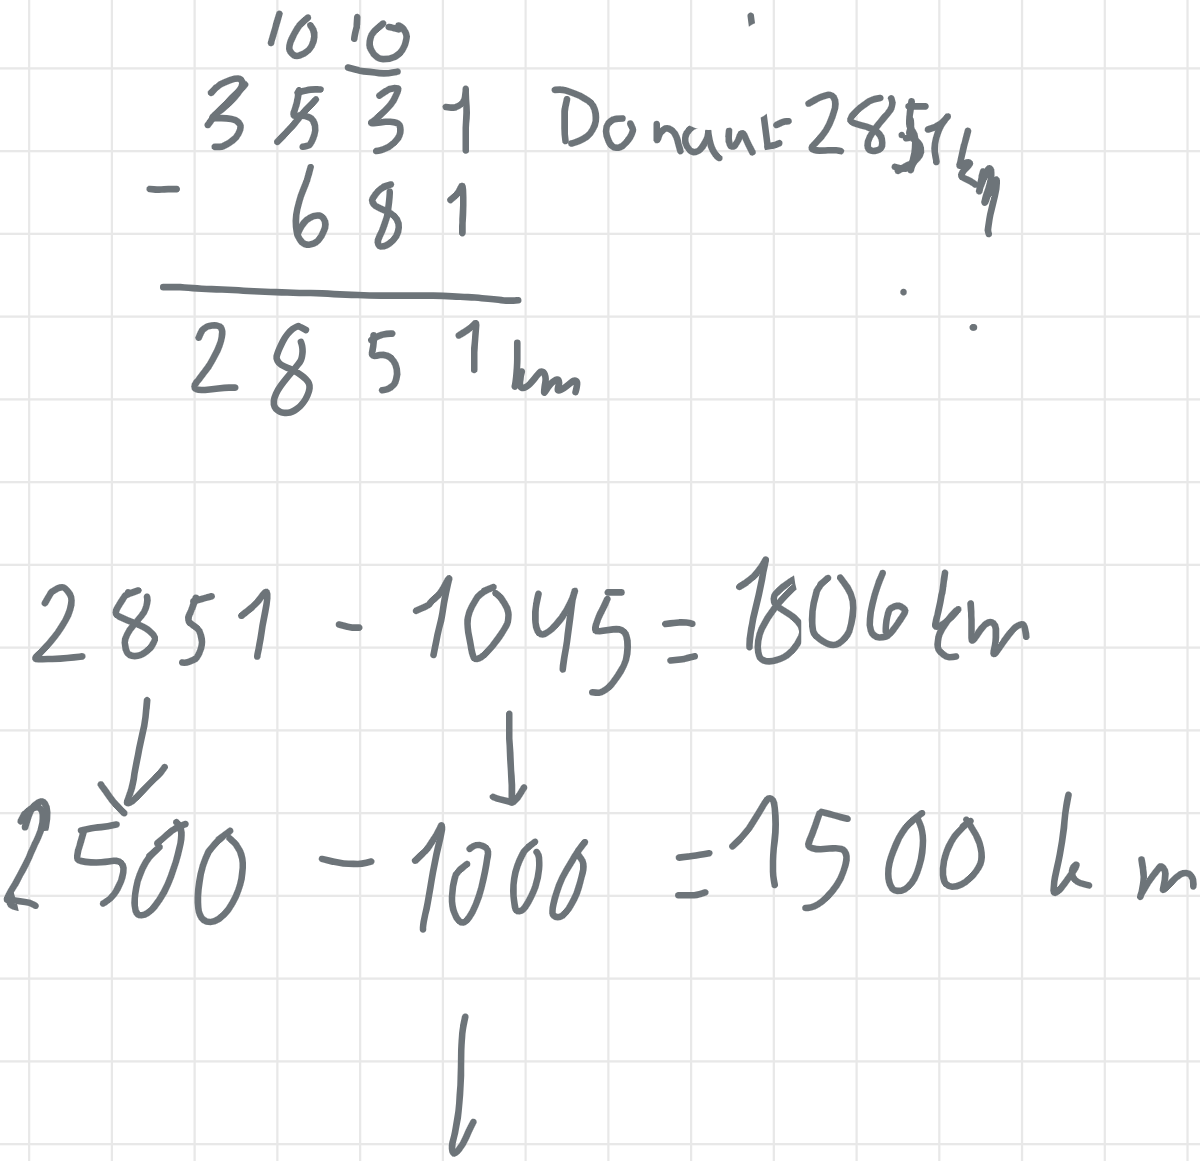 10 10
3 5 3 1 Donau: 2851 km
- 6 8 1
2 8 5 1 km
2851 - 1045 = 1806 km
2500 - 1000 = 1500 km